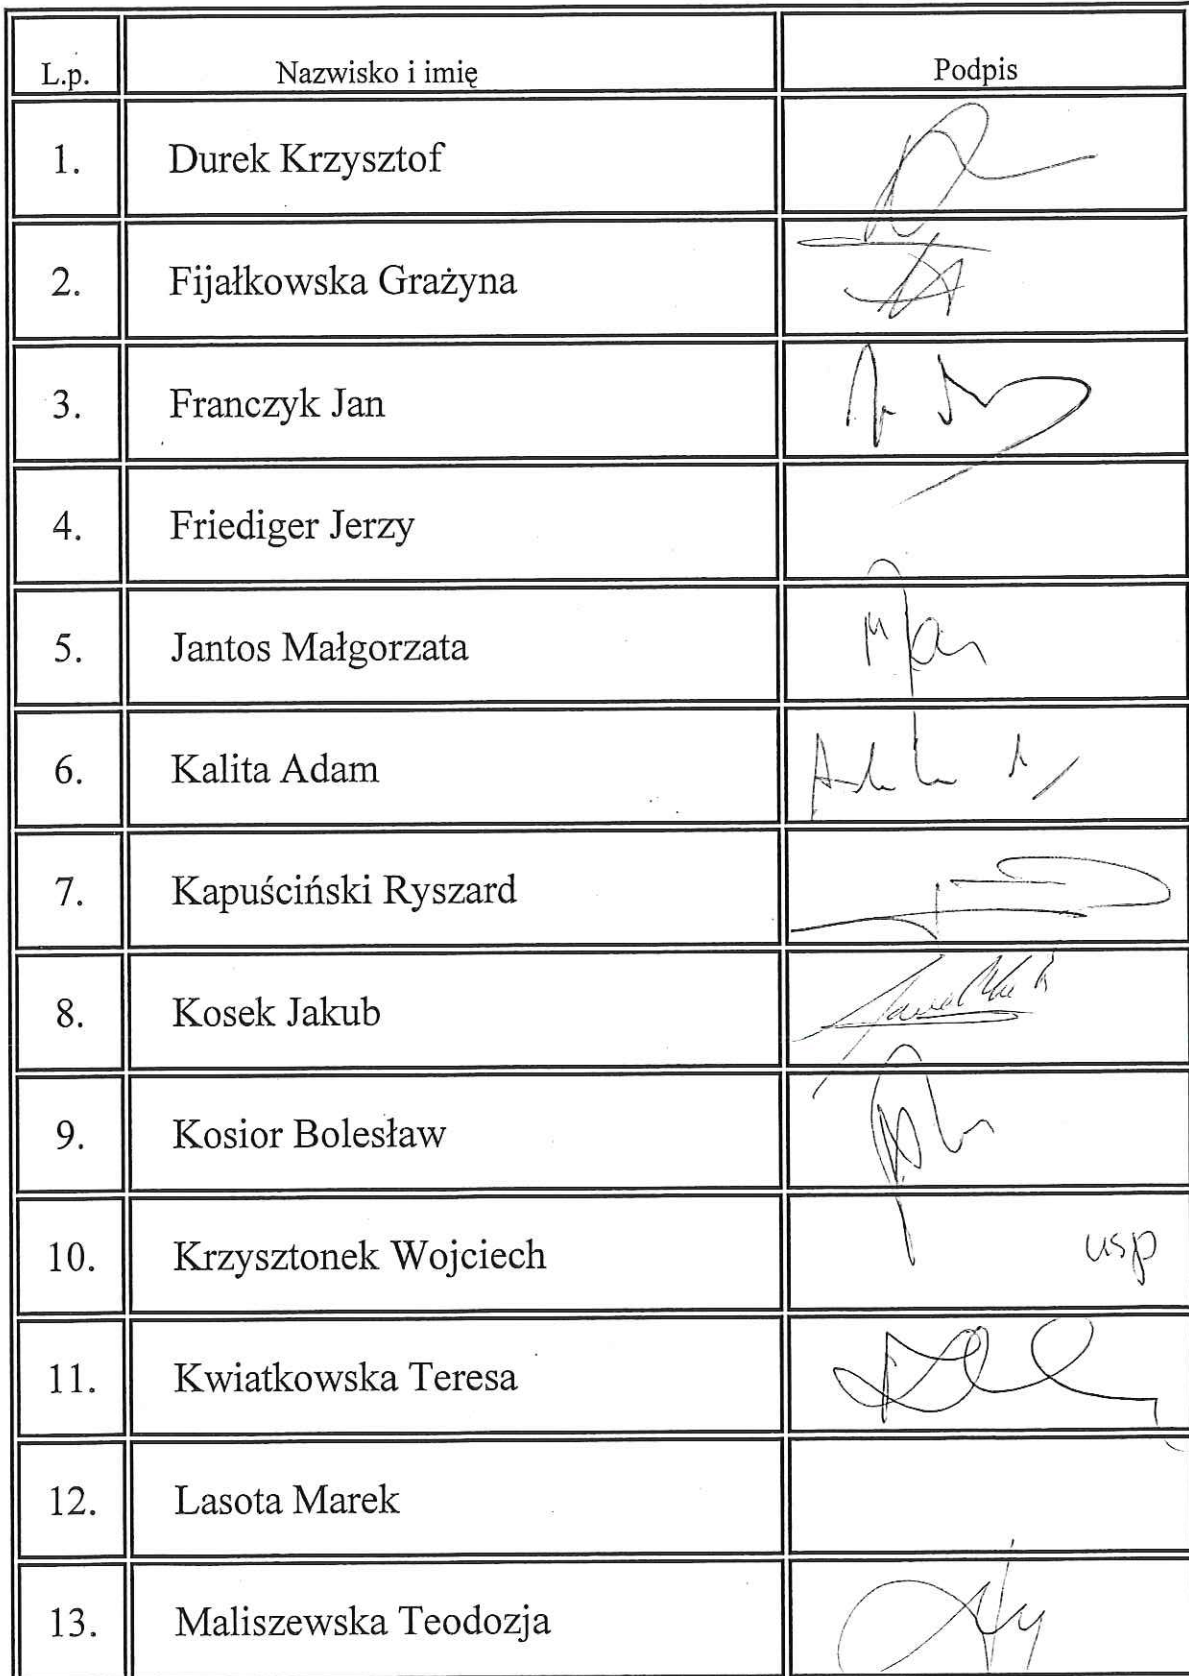 L.p. Nazwisko i imię Podpis
1. Durek Krzysztof
2. Fijałkowska Grażyna
3. Franczyk Jan
4. Friediger Jerzy
5. Jantos Małgorzata
6. Kalita Adam
7. Kapuściński Ryszard
8. Kosek Jakub
9. Kosior Bolesław
10. Krzysztonek Wojciech usp
11. Kwiatkowska Teresa
12. Lasota Marek
13. Maliszewska Teodozja